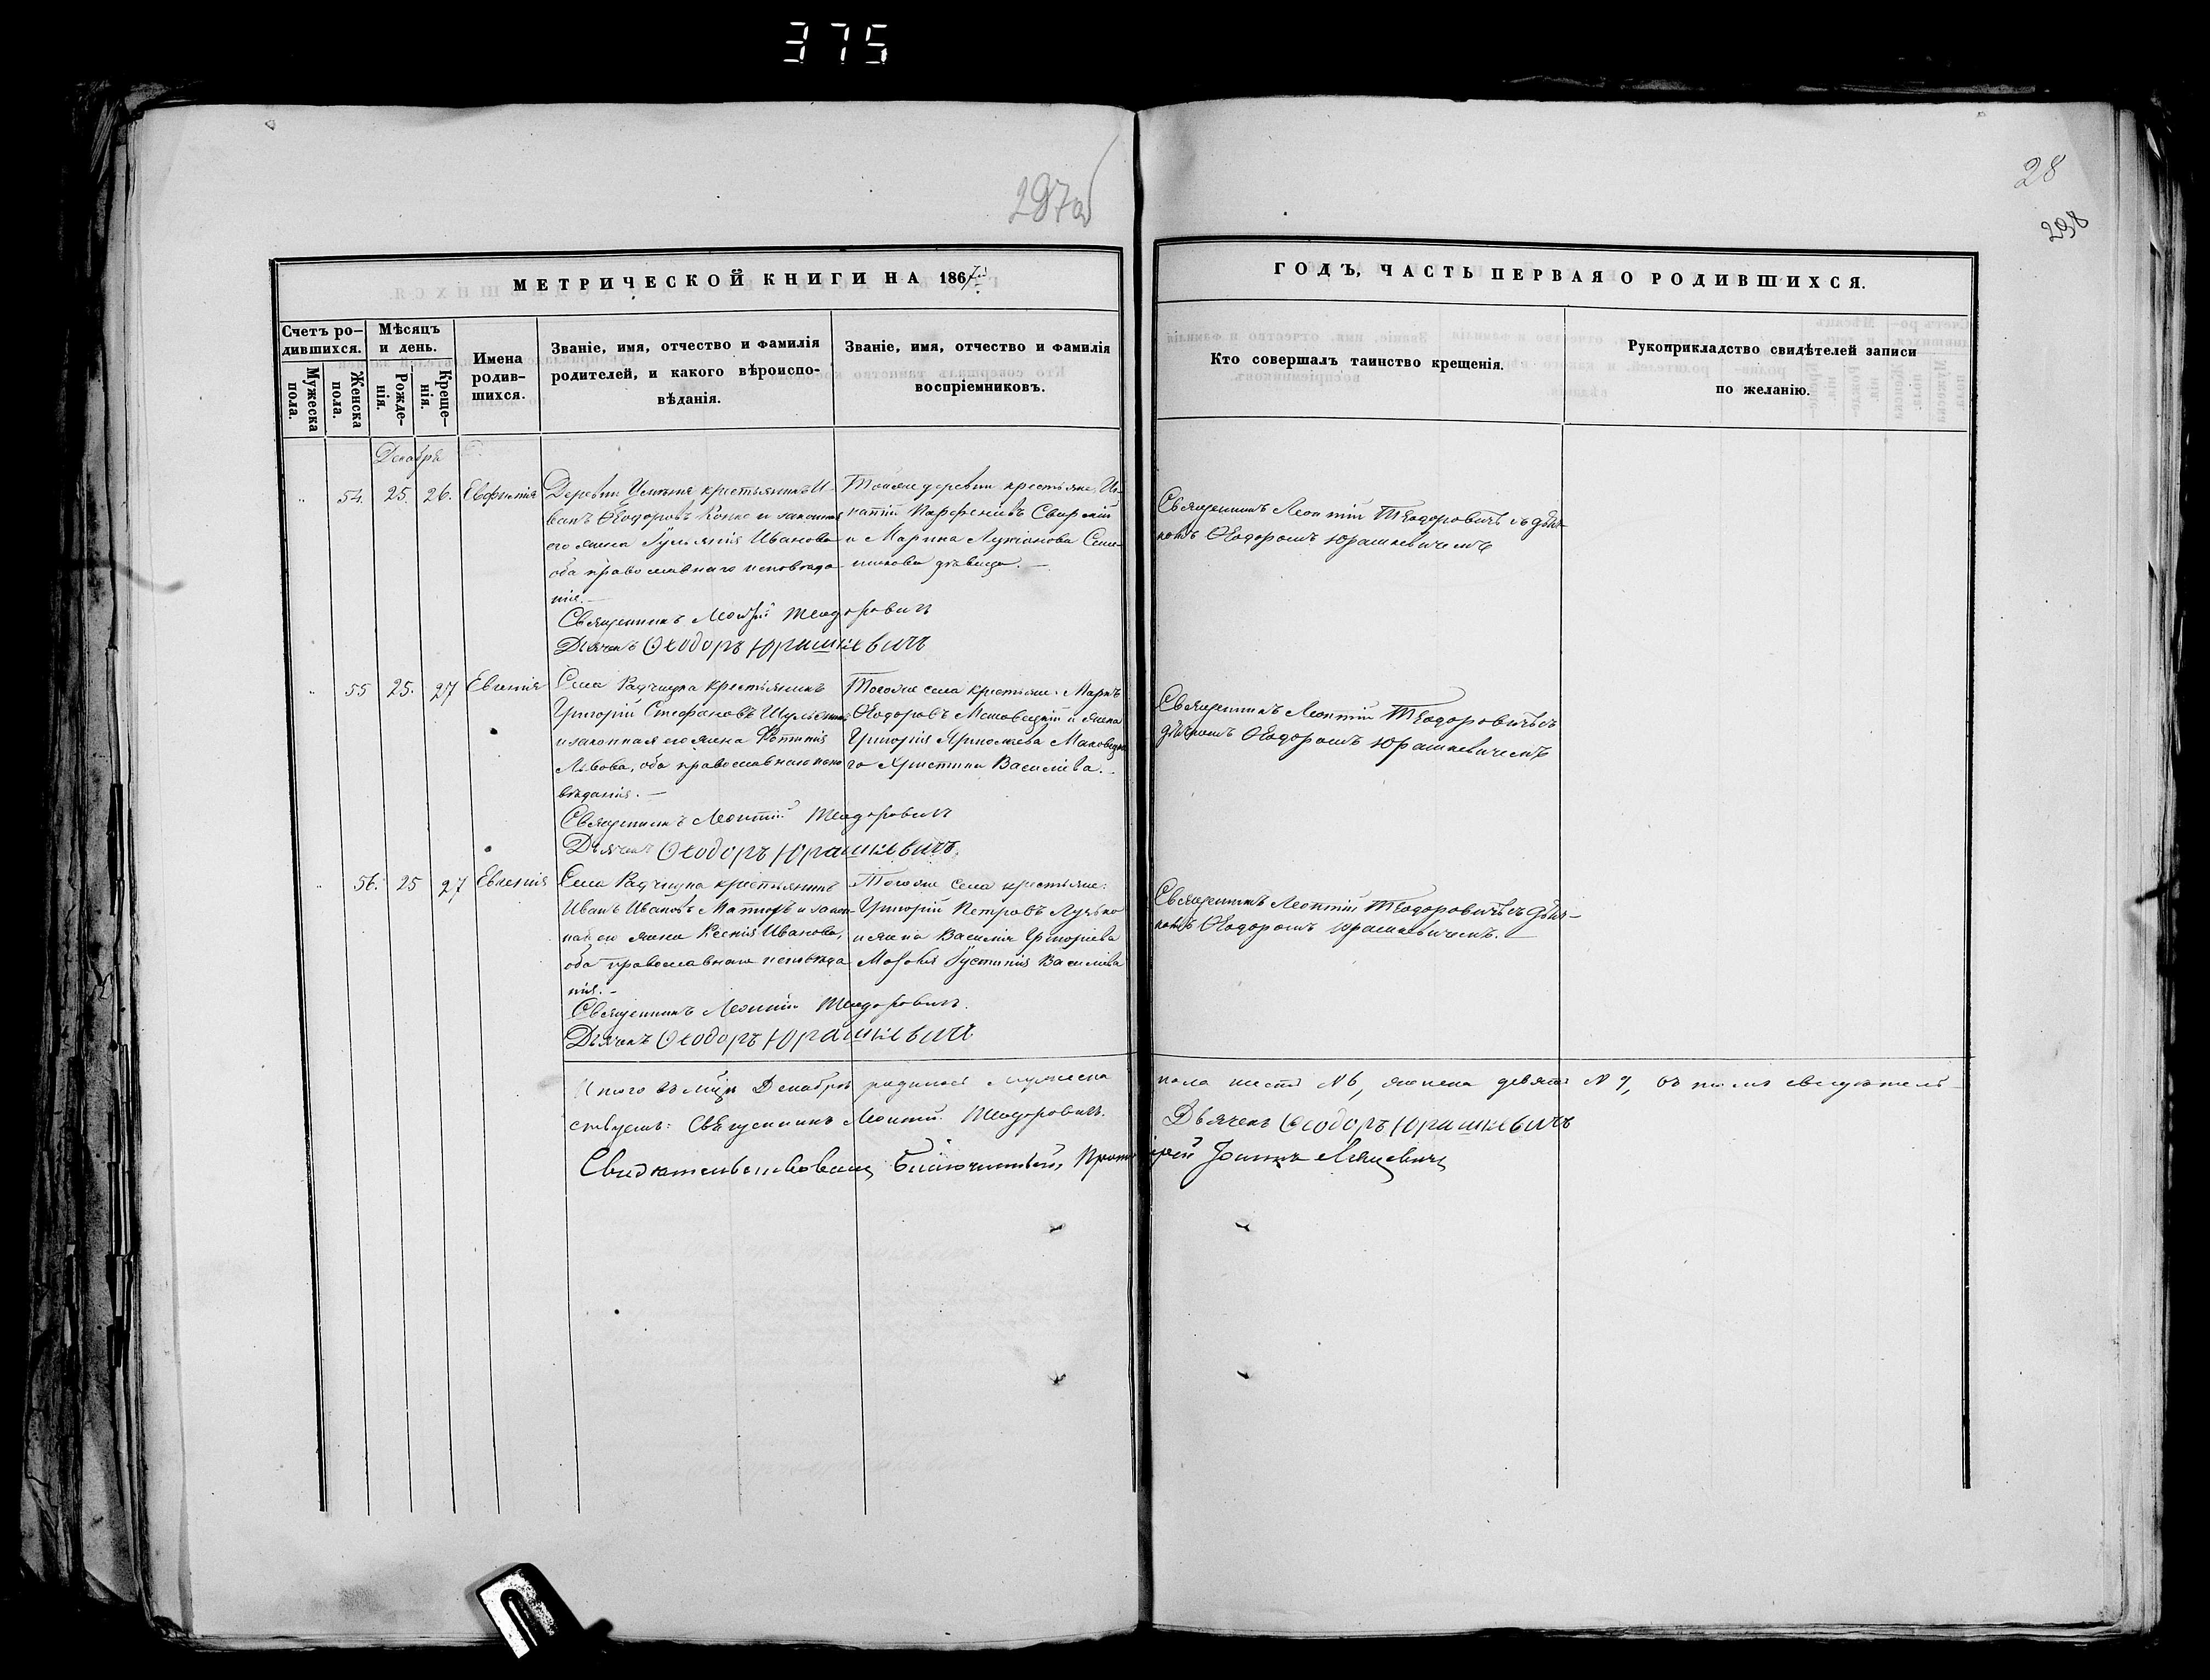 375
297об
28
298
МЕТРИЧЕСКОЙ КНИГИ НА 1867й
ГОДЪ, ЧАСТЬ ПЕРВАЯ О РОДИВШИХСЯ.
Счетъ ро-
дившихся.
Мужеска
пола.
Женска
пола.
Мѣсяцъ
и день.
Рожде-
нія.
Креще-
нія.
Имена
родив-
шихся.
Званіе, имя, отчество и фамилія
родителей, и какого вѣроиспо-
вѣданія.
Званіе, имя, отчество и фамилія
воспріемниковъ.
Кто совершалъ таинство крещенія.
Рукоприкладство свидѣтелей записи
по желанію.
Декабря
54. 25. 26. Евфимія
Деревни крестьянинъ И-
ванъ Ѳеодоровъ и законная
его жена Іуліанія Иванова
оба православнаго исповѣда
нія.—
Священникъ Леонтій Теодоровичъ
Дьячекъ Ѳеодоръ Юрашкевичъ
Тойже деревни крестьяне: Иг-
натій Парфеніевъ Свирскій
и Марина Семе-
никова дѣвица.—
Священникъ Леонтій Теодоровичъ съ дьяч-
комъ Ѳеодоромъ Юрашкевичемъ
55 25. 27 Евгенія
Села Радчицка крестьянинъ
Григорій Стефановъ
и законная его жена Фотинія
Львова, оба православнаго испо
вѣданія.—
Священникъ Леонтій Теодоровичъ
Дьячекъ Ѳеодоръ Юрашкевичъ.
Тогоже села крестьяне: Маркъ
Ѳеодоровъ и жена
Григорія Маковецка
го Христина Василіева.—
Священникъ Леонтій Теодоровичъ съ
дьячкомъ Ѳеодоромъ Юрашкевичемъ
56. 25 27 Евгенія
Села Радчицка крестьянинъ
Иванъ Ивановъ и закон-
ная его жена Ксенія Иванова,
оба православнаго исповѣда
нія.—
Священникъ Леонтій Теодоровичъ.
Дьячекъ Ѳеодоръ Юрашкевичъ
Тогоже села крестьяне:
Григорій Петровъ
и жена Василія Григоріева
Іустинія Василіева
Священникъ Леонтій Теодоровичъ съ дьяч-
комъ Ѳеодоромъ Юрашкевичемъ.—
Итого въ мцѣ Декабрѣ родилось мужеска пола шесть №6, женска девять №9, въ чемъ свидѣтель-
ствуемъ: Священникъ Леонтій Теодоровичъ. Дьячекъ Ѳеодоръ Юрашкевичъ
Свидѣтельствовалъ Благочинный, Протоіерей Іоаннъ